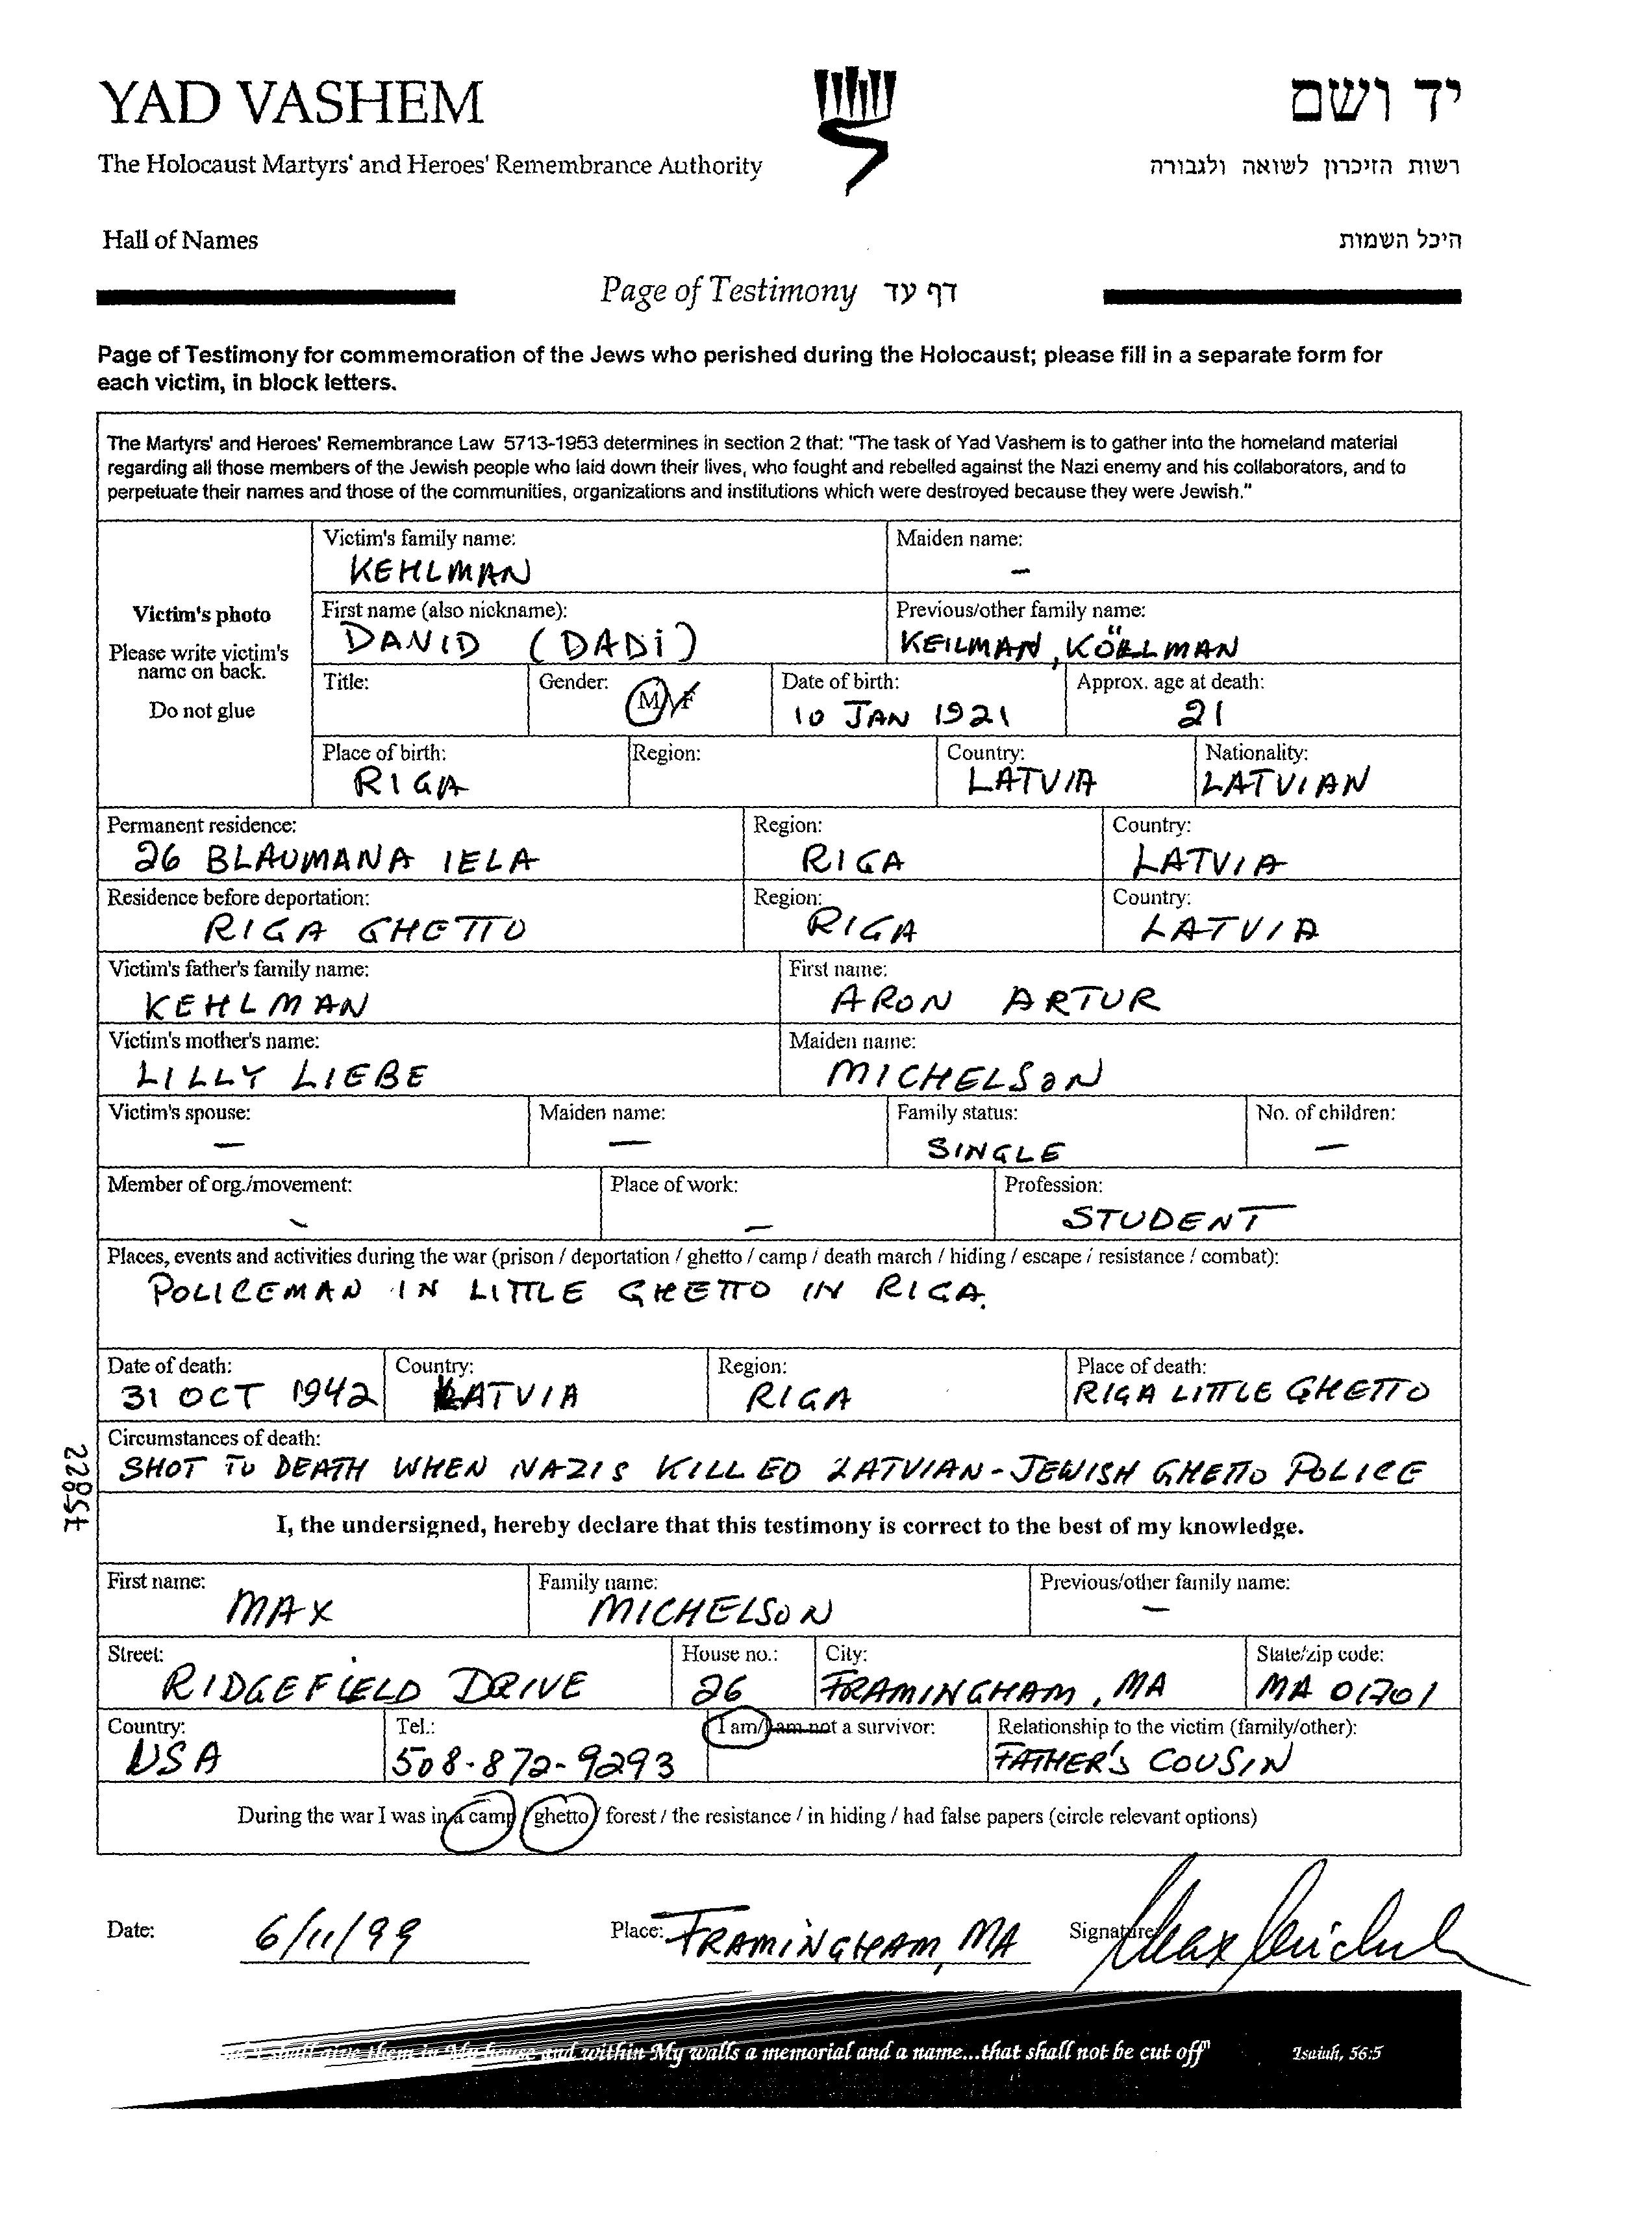 YAD VASHEM
יד ושם
The Holocaust Martyrs' and Heroes' Remembrance Authority
רשות הזיכרון לשואה ולגבורה
Hall of Names
היכל השמות
Page of Testimony דף עד
Page of Testimony for commemoration of the Jews who perished during the Holocaust; please fill in a separate form for
each victim, in block letters.
The Martyrs' and Heroes' Remembrance Law 5713-1953 determines in section 2 that: "The task of Yad Vashem is to gather into the homeland material
regarding all those members of the Jewish people who laid down their lives, who fought and rebelled against the Nazi enemy and his collaborators, and to
perpetuate their names and those of the communities, organizations and institutions which were destroyed because they were Jewish."
Victim's photo
Please write victim's
name on back.
Do not glue
Victim's family name: Maiden name:
KEHLMAN –
First name (also nickname): Previous/other family name:
DAVID (DADI) KEILMAN, KÖLLMAN
Title: Gender: M/F Date of birth: Approx. age at death:
10 JAN 1921 21
Place of birth: Region: Country: Nationality:
RIGA LATVIA LATVIAN
Permanent residence: Region: Country:
26 BLAUMANA IELA RIGA LATVIA
Residence before deportation: Region: Country:
RIGA GHETTO RIGA LATVIA
Victim's father's family name: First name:
KEHLMAN ARON ARTUR
Victim's mother's name: Maiden name:
LILLY LIEBE MICHELSON
Victim's spouse: Maiden name: Family status: No. of children:
– – SINGLE –
Member of org./movement: Place of work: Profession:
– – STUDENT
Places, events and activities during the war (prison / deportation / ghetto / camp / death march / hiding / escape / resistance / combat):
POLICEMAN IN LITTLE GHETTO IN RIGA.
Date of death: Country: Region: Place of death:
31 OCT 1942 LATVIA RIGA RIGA LITTLE GHETTO
Circumstances of death:
SHOT TO DEATH WHEN NAZIS KILLED LATVIAN-JEWISH GHETTO POLICE
I, the undersigned, hereby declare that this testimony is correct to the best of my knowledge.
First name: Family name: Previous/other family name:
MAX MICHELSON –
Street: House no.: City: State/zip code:
RIDGEFIELD DRIVE 26 FRAMINGHAM, MA MA 01701
Country: Tel.: I am/I am not a survivor: Relationship to the victim (family/other):
USA 508-872-9293 FATHER'S COUSIN
During the war I was in a camp / ghetto / forest / the resistance / in hiding / had false papers (circle relevant options)
Date: 6/11/99 Place: FRAMINGHAM, MA Signature: Max Michel
shall give them in My house and within My walls a memorial and a name...that shall not be cut off" Isaiah, 56:5